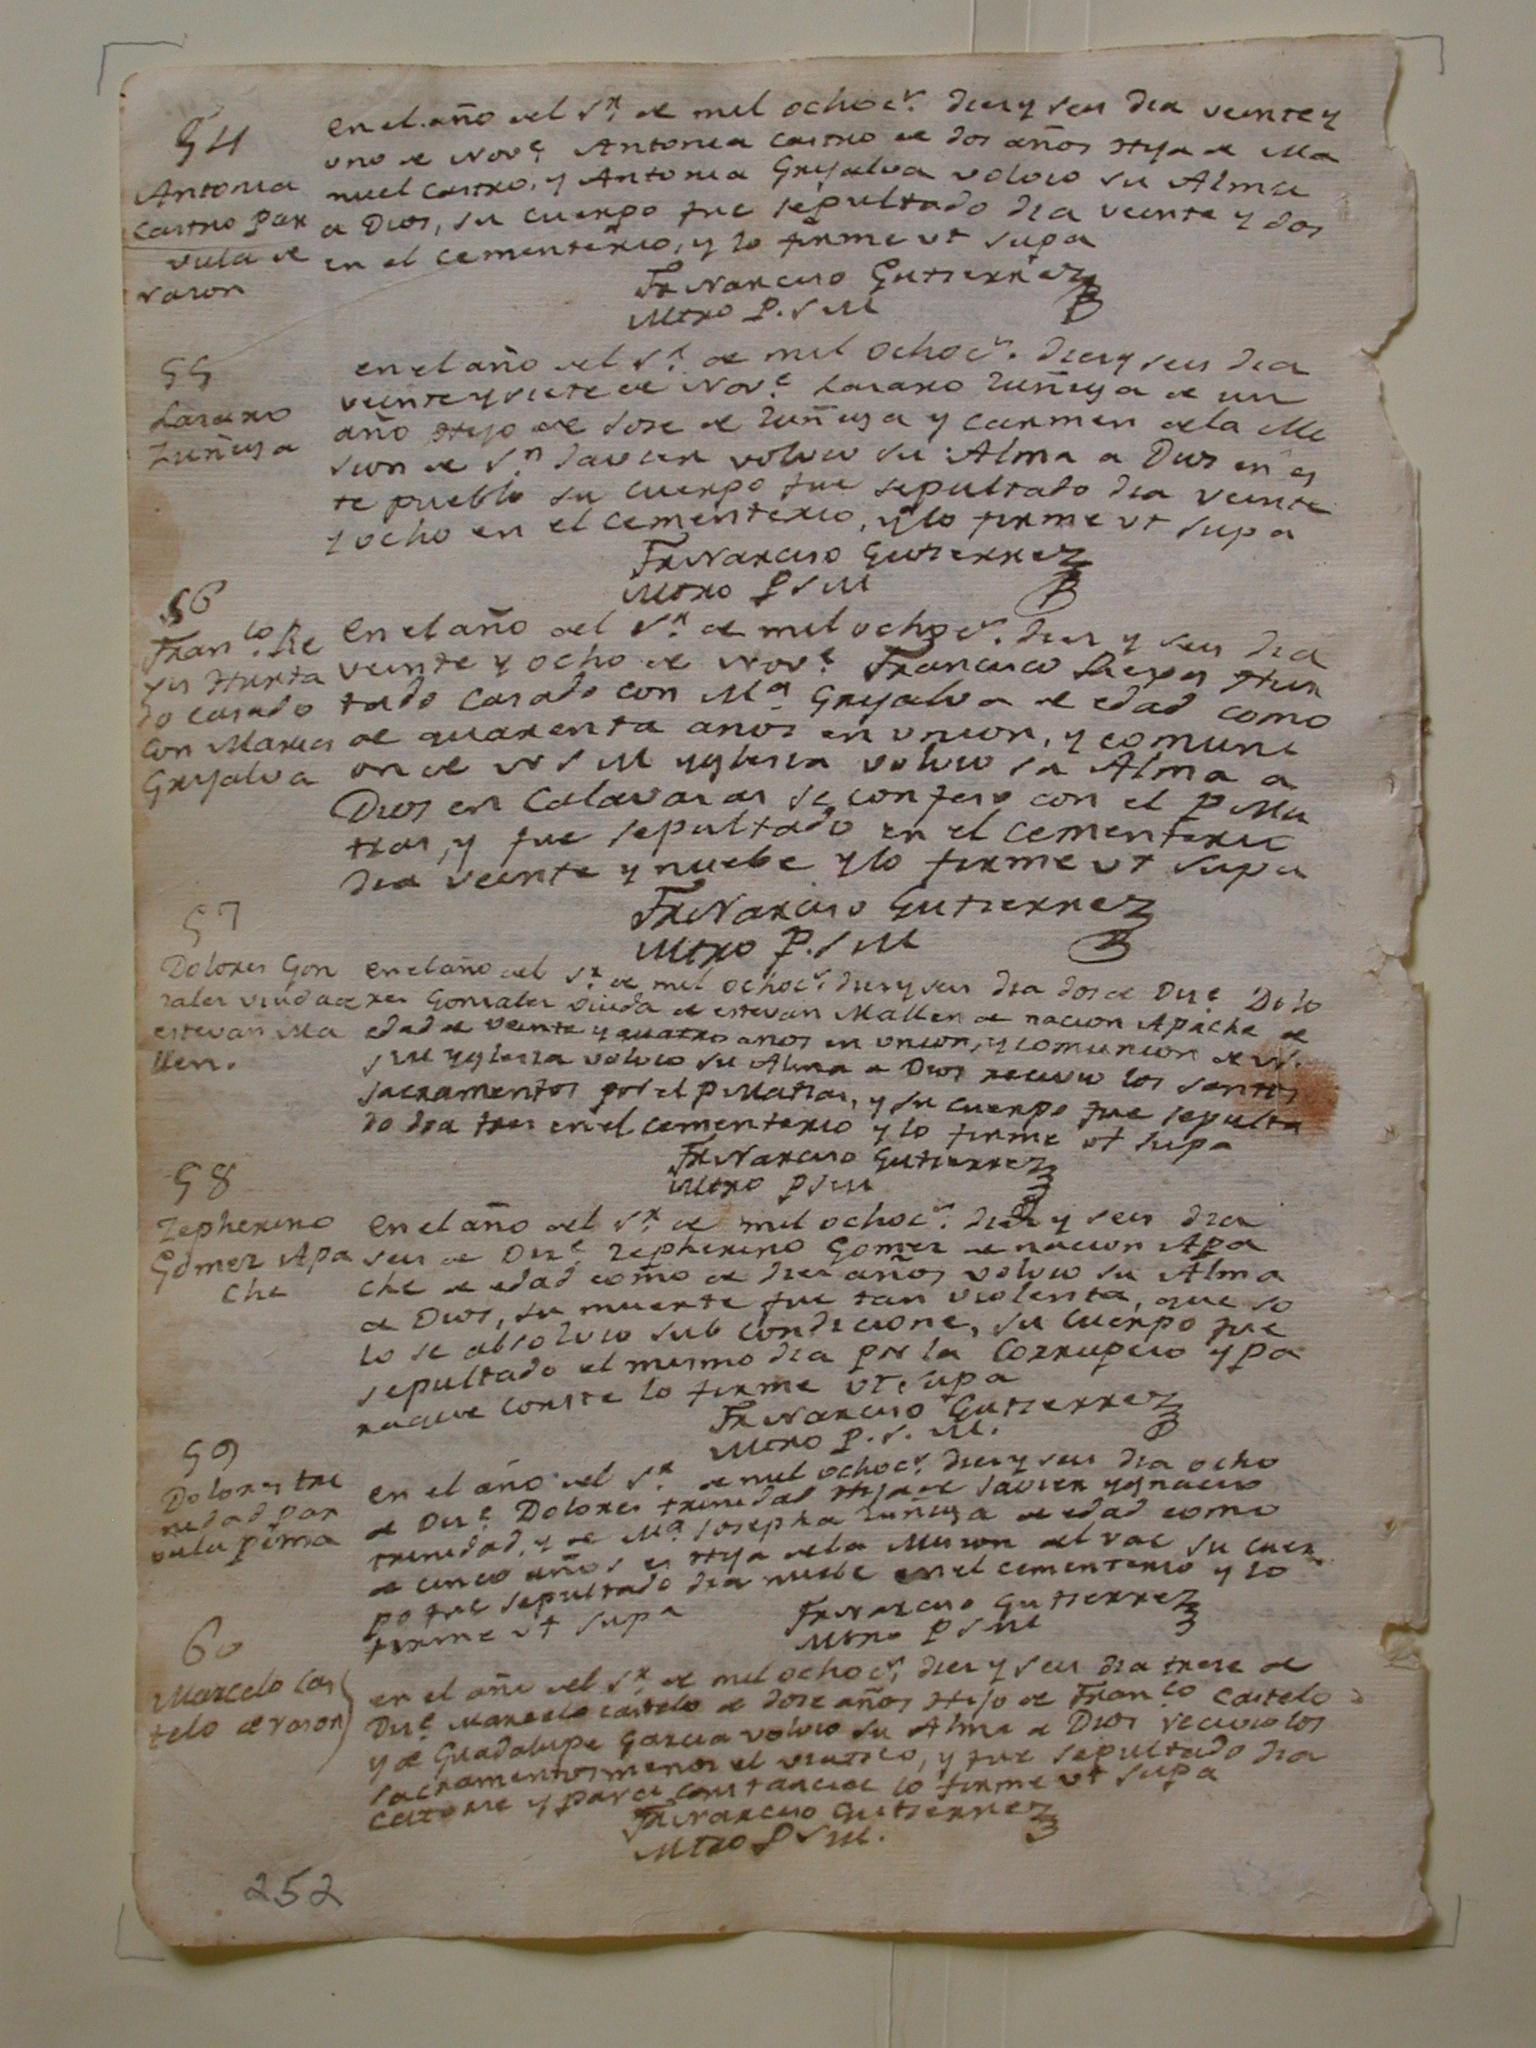 54
Antonia
Castro par
vula de
rason
en el año del Sr. de mil ochocs. dies y seis dia veinte y
uno de Nove. Antonia Castro de dos años Hija de Ma
nuel Castro, y Antonia Grijalva volvio su Alma
a Dios, su cuerpo fue sepultado dia veinte y dos
en el cementerio, y lo firme ut supa
Fr Narciso Gutierrez
Mtro P. S M
55
Lasaro
Zuñiga
en el año del Sr. de mil ochocs. dies y seis dia
veinte y siete de Nove. Lasaro Zuñiga de un
año Hijo de Jose de Zuñiga y Carmen dela Mi
sion de Sn Javier volvio su Alma a Dios en es
te pueblo su cuerpo fue sepultado dia veinte
y ocho en el cementerio, y lo firme ut supa
Fr Narciso Gutierrez
Mtro P S M
56
Franco. Re
yes Hurta
do casado
con Maria
Grijalva
En el año del Sr. de mil ochocs. dies y seis dia
veinte y ocho de Nove. Francisco Reyes Hur
tado casado con Ma Grijalva de edad como
de quarenta anos en union, y comuni
on de N S M yglesia volvio su Alma a
Dios en Calavasas se confeso con el P Ma
tias, y fue sepultado en el cementerio
dia veinte y nuebe y lo firme ut supa
Fr Narciso Gutierrez
Mtro P. S M
57
Dolores Gon
sales viuda de
estevan Ma
llen.
en el año del Sr. de mil ochocs. dies y seis dia dos de Dice. Dolo
res Gonsales viuda de estevan Mallen de nacion Apache de
edad de veinte y quatro anos en union, y comunion de N.
S M yglesia volvio su Alma a Dios recivio los santos
sacramentos por el P Matias, y su cuerpo fue sepulta
do dia tres en el cementerio y lo firme ut supa
Fr Narciso Gutierrez
Mtro P S M
58
Zepherino
Gomez Apa
che
en el año del Sr. de mil ochocs. dies y seis dia
seis de Dice. Zepherino Gomez de nacion Apa
che de edad como de dies años volvio su Alma
a Dios, su muerte fue tan violenta, que so
lo se absolvio sub condicione, su cuerpo fue
sepultado el mismo dia por la Corrupcio y pa
raque conste lo firme ut supa
Fr Narciso Gutierrez
Mtro P. S. M.
59
Dolores tri
nidad par
vula pima
en el año del Sr. de mil ochocs. dies y seis dia ocho
de Dice. Dolores trinidad Hija de Javier ygnacio
trinidad, y de Ma. Josepha Zuñiga de edad como
de cinco años es Hija dela Mision del Vac su cuer
po fue sepultado dia nuebe en el cementerio y lo
firme ut supa
Fr Narciso Gutierrez
Mtro P S M
60
Marcelo Cas
telo de rason
en el año del Sr. de mil ochocs. dies y seis dia trese de
Dice. Marcelo Castelo de dose años Hijo de Franco Castelo
y de Guadalupe Garcia volvio su Alma a Dios recivio los
sacramentos menos el viatico, y fue sepultado dia
catorse y para constancia lo firme ut supa
Fr Narciso Gutierrez
Mtro P S M.
252